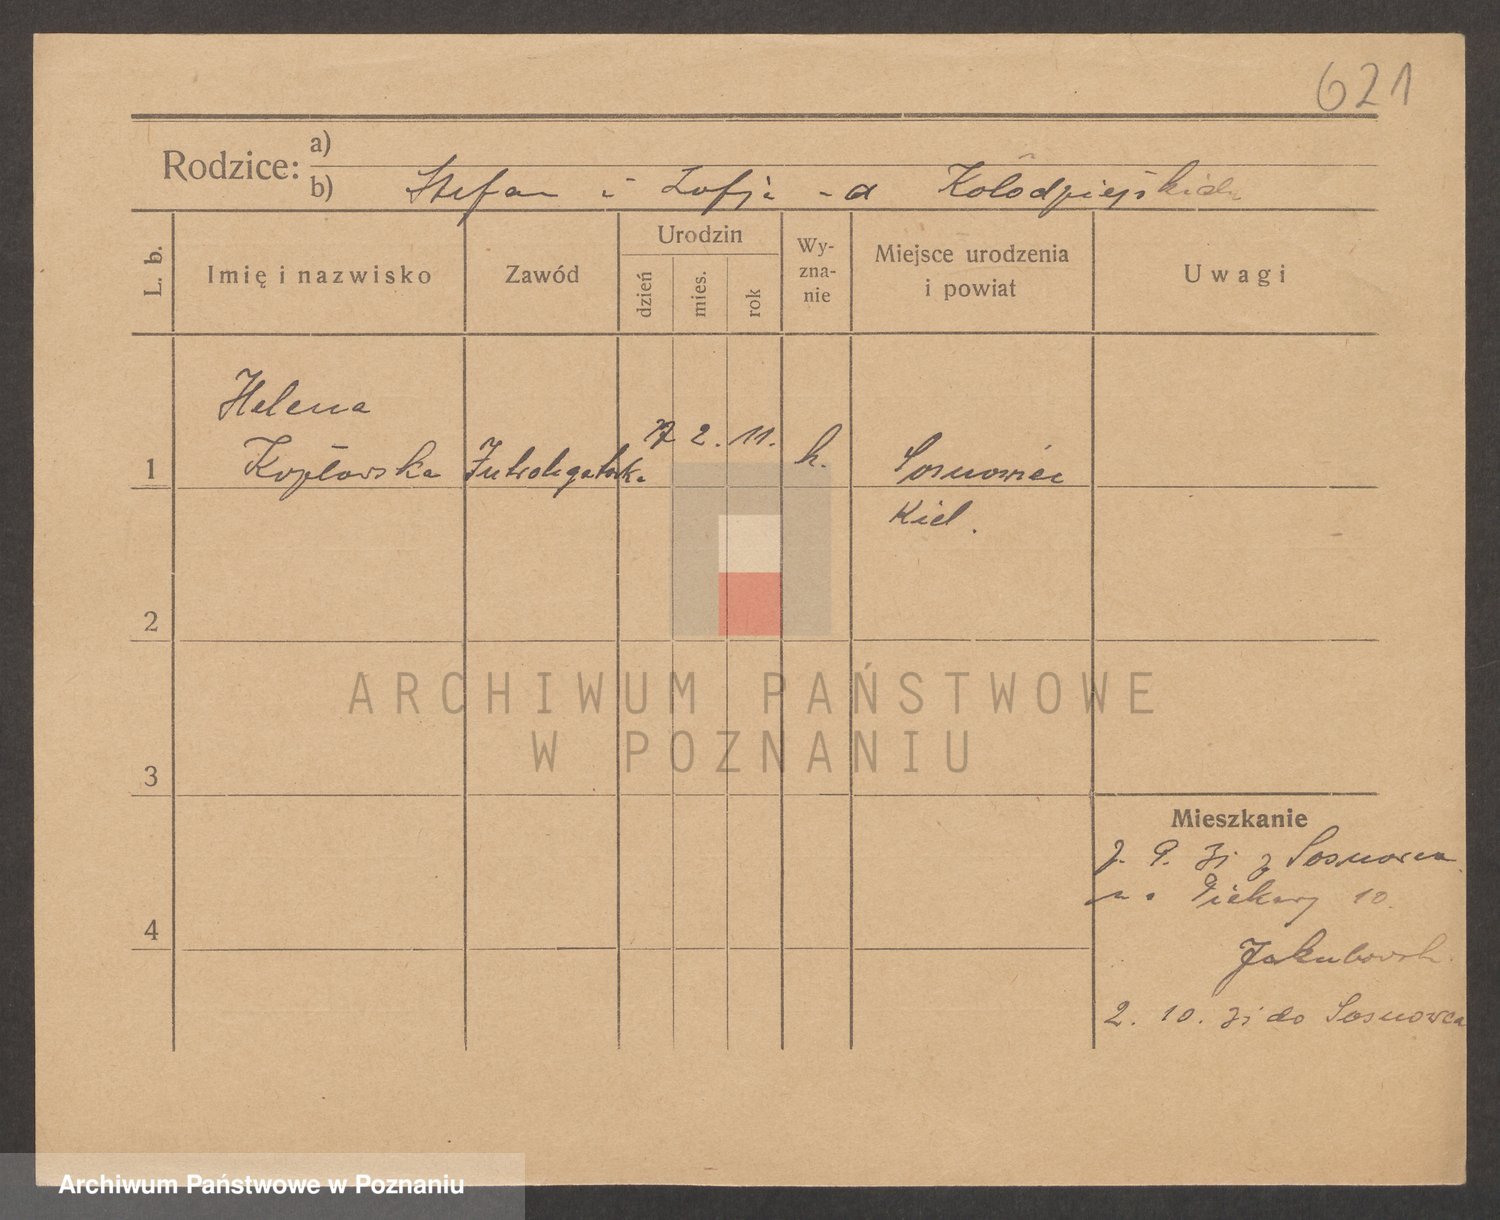 621
Rodzice: a)
b) Stefan i Zofja -a Kołodziejskich
L. b.
Imię i nazwisko
Zawód
Urodzin
dzień
mies.
rok
Wy-
zna-
nie
Miejsce urodzenia
i powiat
Uwagi
Helena
1 Kozłowska Introligatorka 7 2. 11. k. Sosnowiec
Kiel.
2
3
4
Mieszkanie
9. 31 z Sosnowca
na Piekary 10.
Jakubowsk.
2. 10. 31 do Sosnowca
ARCHIWUM PAŃSTWOWE
W POZNANIU
Archiwum Państwowe w Poznaniu